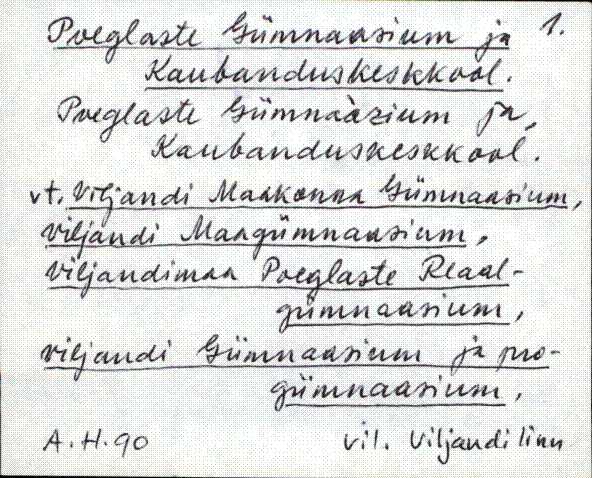 Poeglaste Gümnaasium ja 1.
Kaubanduskeskkool.
Poeglaste Gümnaàzium ja,
Kaubanduskeskkool.
vt. Viljandi Maakonna Gümnaasium,
Viljandi Maagümnaasium,
Viljandimaa Poeglaste Reaal-
gümnaasium,
Viljandi Gümnaasium ja pro-
gümnaasium,
A.H.90 Vil. Viljandi linn